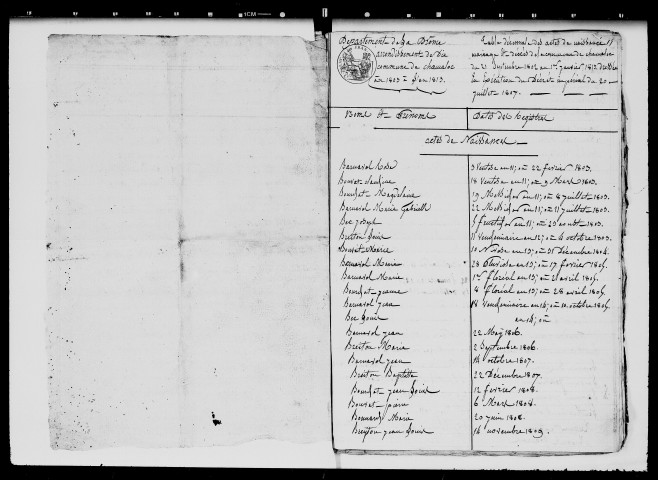 Departement de la Drôme
arrondissement de Die
commune de chamaloc
an 1803 à l'an 1813.
Table décennale des actes de naissance
mariage et décès de la commune de chamaloc
du 21 Septembre 1802 au 1er janvier 1813
En Exécution du Décret impérial du 20
juillet 1807.
Noms et Prénoms
Date des Registres
actes de Naissances
Barnavol Rose 3 Ventose an 11; ou 22 fevrier 1803.
Bouvat 18 Ventose an 11; ou 9 Mars 1803.
Bouchet Magdelaine 19 Messidor an 11; ou 8 juillet 1803.
Barnavol Marie Gabrielle 22 Messidor an 11; ou 11 juillet 1803.
Bec Joseph 5 fructidor an 11; ou 23 août 1803.
Breiton Louis 11 Vendemiaire an 12; ou 4 octobre 1803.
Bouvat Marie 10 Nivose an 13; ou 31 Décembre 1804.
Barnavol Marie 28 Pluviose an 13; ou 17 fevrier 1805.
Barnavol Marie 1er floreal an 13; ou 21 avril 1805.
Bouchet jeanne 8 floreal an 13; ou 28 avril 1805.
Barnavol jean 18 Vendemiaire an 14; ou 10 octobre 1805.
Bec Louis an 14; ou
Barnavol jean 22 May 1806.
Breiton Marie 2 Septembre 1806.
Barnavol jean 14 octobre 1807.
Breiton Baptiste 22 Décembre 1807.
Bouchet jean Louis 12 fevrier 1808.
Bouvat pierre 6 Mars 1808.
Bonnard Marie 20 juin 1808.
Breiton jean Louis 14 novembre 1809.
1CM